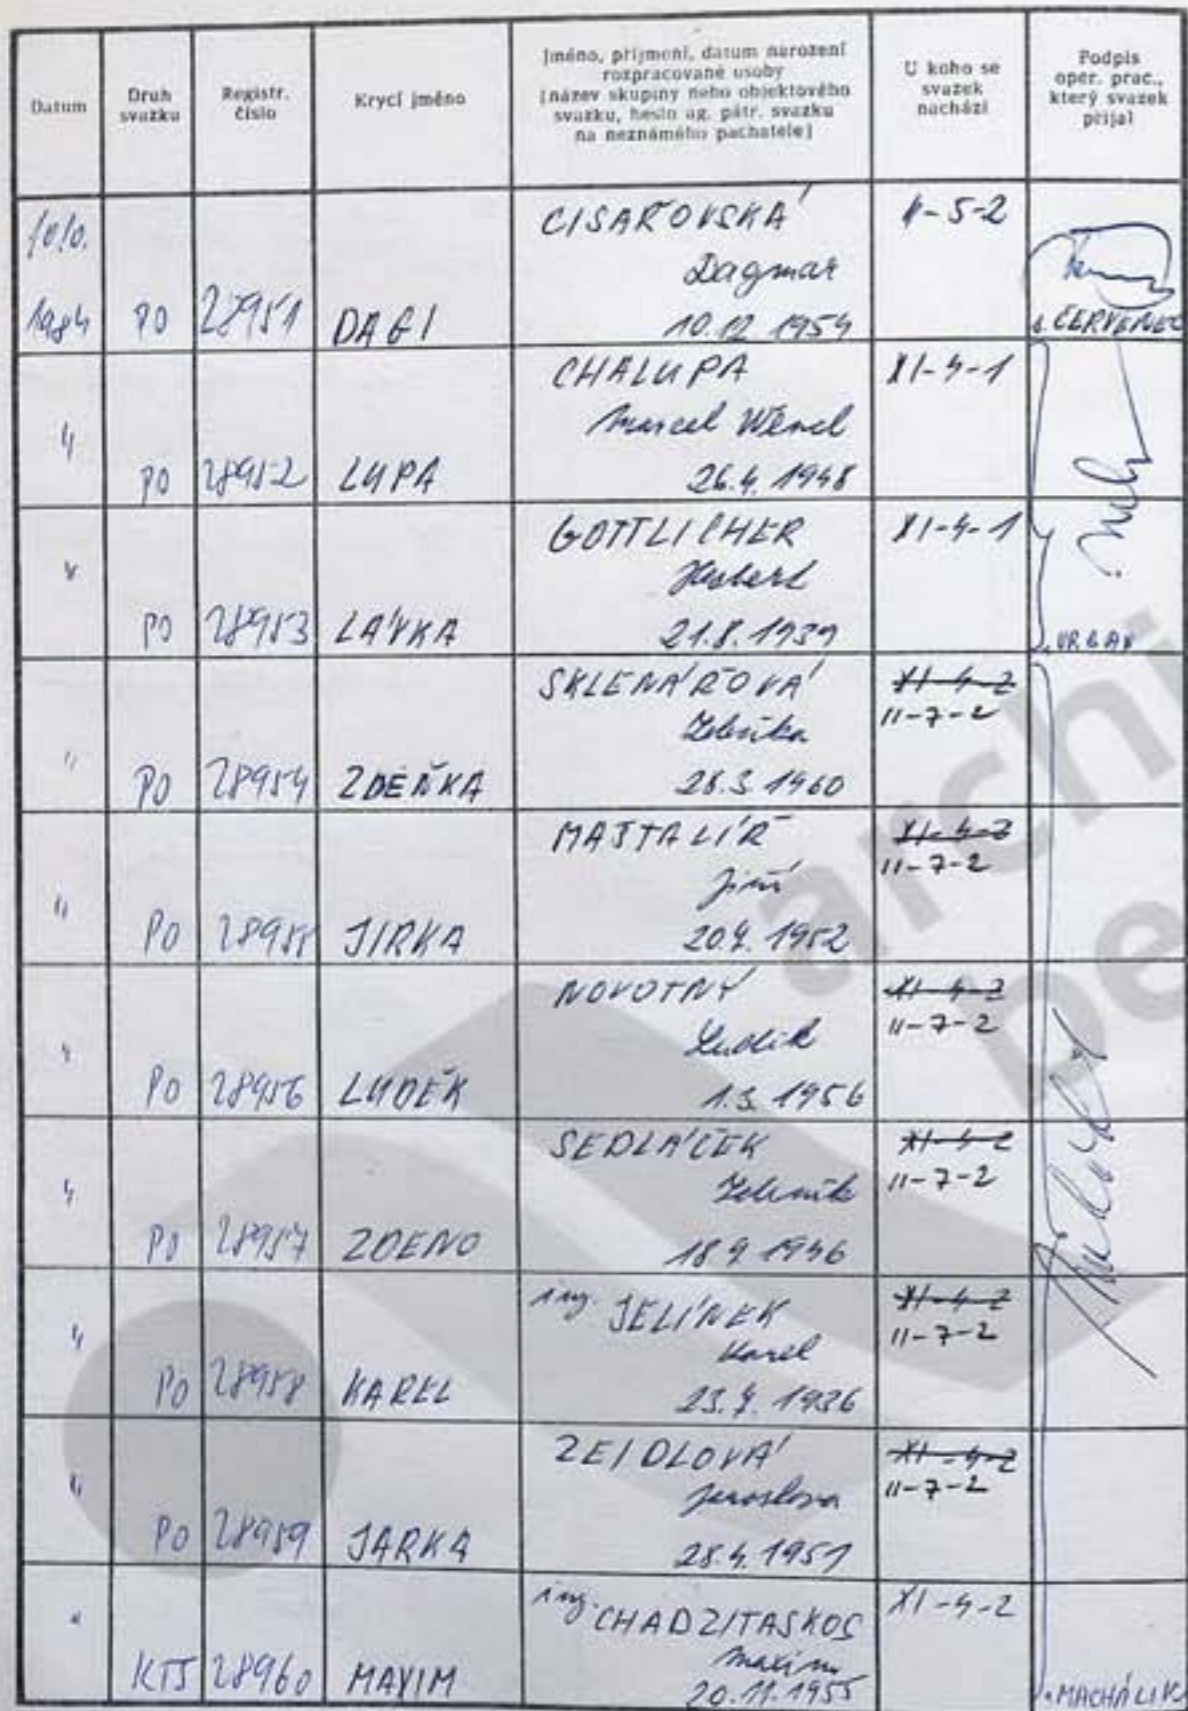 Datum
Druh
svazku
Registr.
číslo
Krycí jméno
Jméno, příjmení, datum narození
rozpracované osoby
(název skupiny nebo objektového
svazku, heslo ag. pátr. svazku
na neznámého pachatele)
U koho se
svazek
nachází
Podpis
oper. prac.,
který svazek
přijal
10/10.
1984 PO 28951 DAGI
CISAŘOVSKÁ
Dagmar
10.12.1954
II-5-2
s. ČERVENEC
" PO 28952 LUPA
CHALUPA
Marcel
26.4.1948
XI-4-1
" PO 28953 LÁVKA
GOTTLICHER
Herbert
21.8.1939
XI-4-1
s. URBAN
" PO 28954 ZDEŇKA
SKLENÁŘOVÁ
Zdenka
28.3.1960
XI-4-2
II-7-2
" PO 28955 JIRKA
MAŠTALÍŘ
Jiří
1952
XI-4-2
II-7-2
" PO 28956 LUDĚK
NOVOTNÝ
Luděk
1.3.1956
XI-4-2
II-7-2
" PO 28957 ZDENO
SEDLÁČEK
Zdeněk
1946
XI-4-2
II-7-2
" PO 28958 KAREL
ing. JELÍNEK
Karel
1936
XI-4-2
II-7-2
" PO 28959 JARKA
ZEIDLOVÁ
Jaroslava
28.4.1951
XI-4-2
II-7-2
" KTS 28960 MAXIM
ing. CHADZITASKOS
Maxim
20.11.1955
XI-4-2
s. MACHÁLIK
archi
pe